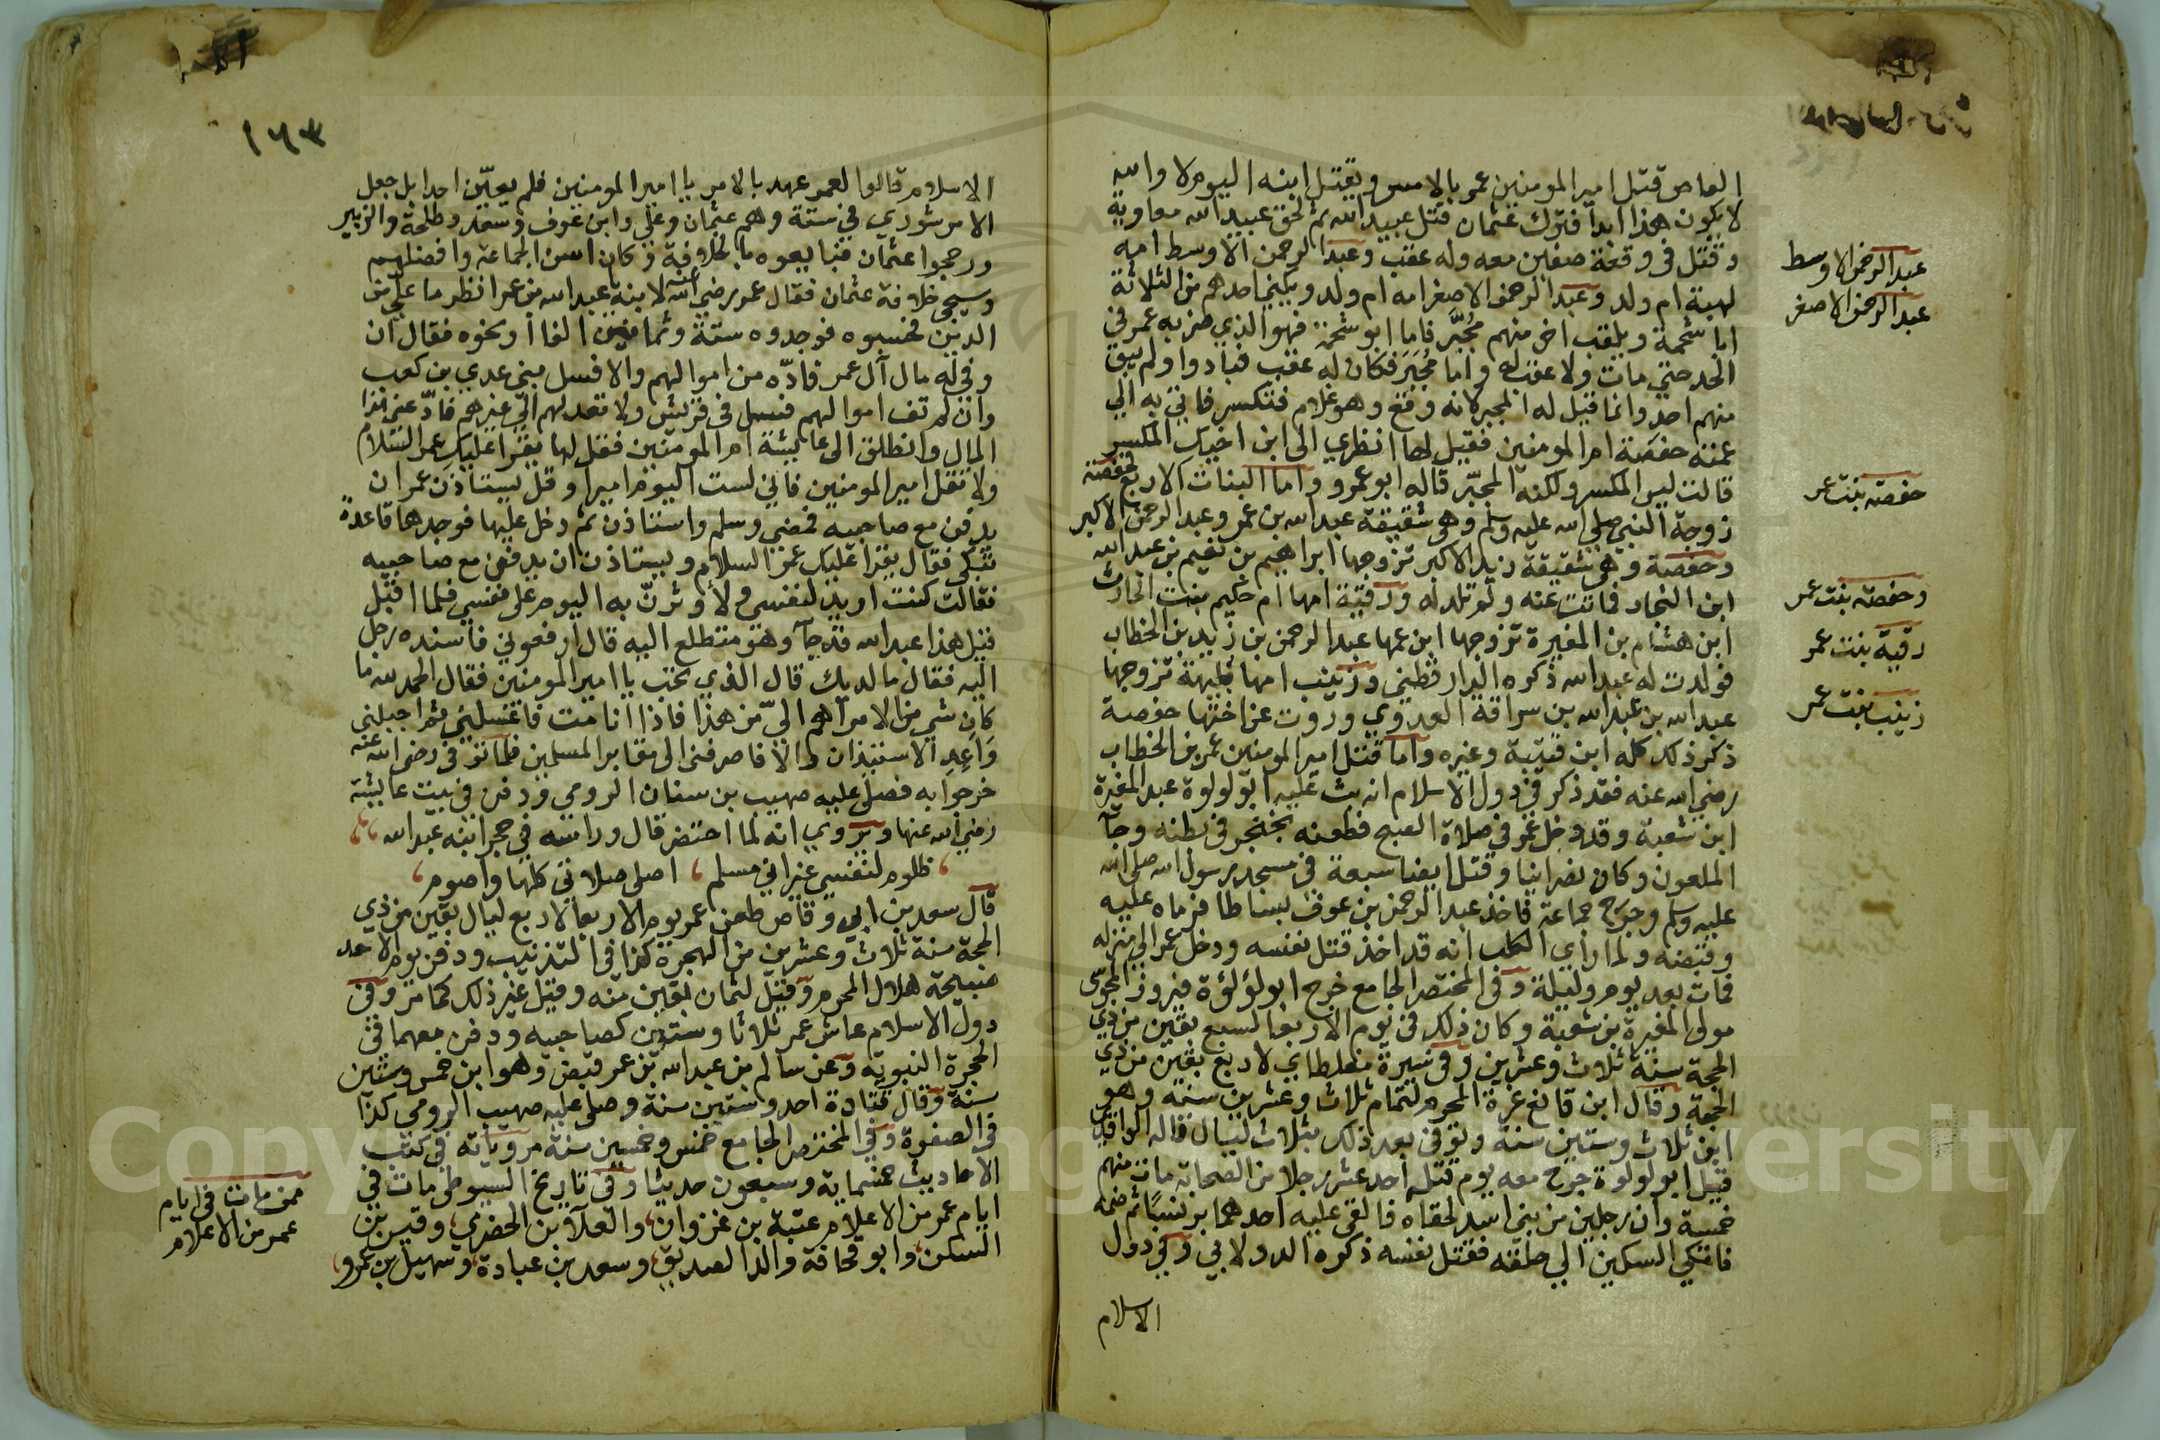 العاص قتل امير المومنين عمر بالامس ويقتل ابنه اليوم لا والله
لا يكون هذا ابدا فترك عثمان قتل عبيد الله ثم لحق عبيد الله معاوية
وقتل في وقعة صفين معه وله عقب وعبد الرحمن الاوسط امه
لهية ام ولد وعبد الرحمن الاصغر امه ام ولد ويكنى احدهم من الثلاثة
ابا شحمة ويلقب اخر منهم مُجَبَّر فاما ابو شحمة فهو الذي ضربه عمر في
الحد حتى مات ولا عقب له واما مُجَبَر فكان له عقب فبادوا ولم يبق
منهم احد وانما قيل له المجبر لانه وقع وهو غلام فتكسر فاتي به الى
عمته حفصة ام المومنين فقيل لها انظري الى ابن اخيك المكسر
قالت ليس المكسر ولكنه المجبّر قاله ابو عمرو واما البنات الاربع فحفصة
زوجة النبي صلى الله عليه وسلم وهي شقيقة عبد الله بن عمر وعبد الرحمن الاكبر
وحفصة وهي شقيقة زيد الاكبر تزوجها ابراهيم بن نعيم بن عبد الله
ابن النحام فماتت عنه ولم تلد له ورقية امها ام حكيم بنت الحارث
ابن هشام بن المغيرة تزوجها ابن عمها عبد الرحمن بن زيد بن الخطاب
فولدت له عبد الله ذكره الدارقطني وزينب امها فكيهة تزوجها
عبد الله بن عبد الله بن سراقة العدوي وروت عن اختها حفصة
ذكر ذلك كله ابن قتيبة وغيره واما قتل امير المومنين عمر بن الخطاب
رضي الله عنه فقد ذكر في دول الاسلام انه وثب عليه ابو لولوة عبد المغيرة
ابن شعبة وقد دخل عمر في صلاة الصبح فطعنه بخنجر في بطنه وجآ
الملعون وكان نصرانيا وقتل ايضا سبعة في مسجد رسول الله صلى الله
عليه وسلم وجرح جماعة فاخذ عبد الرحمن بن عوف بساطا فرماه عليه
وقبضه ولما راى الكلب انه قد اخذ قتل نفسه ودخل عمر الى منزله
فمات بعد يوم وليلة وفي المختصر الجامع خرج ابو لؤلؤة فيروز المجوسي
مولى المغيرة بن شعبة وكان ذلك في يوم الاربعا لسبع بقين من ذي
الحجة سنة ثلاث وعشرين وفي سيرة مغلطاي لاربع بقين من ذي
الحجة وقال ابن قانع غرة المحرم لتمام ثلاث وعشرين سنة وهو
ابن ثلاث وستين سنة وتوفي بعد ذلك بثلاث ليال قاله الواقدي
قيل ابو لولوة جرح معه يوم قتله احد عشر رجلا من الصحابة مات منهم
خمسة وان رجلين من بني اسد لحقاه فالقى عليه احدهما برنسًا ثم ضمه
فاتكى السكين الي حلقه فقتل نفسه ذكره الدولابي وفي دول
الاسلام
عبد الرحمن الاوسط
عبد الرحمن الاصغر
حفصة بنت عمر
وحفصة بنت عمر
رقية بنت عمر
زينب بنت عمر
١٦٣
الاسلام قالوا لعمر عهد بالامر يا امير المومنين فلم يعيّن احدا بل جعل
الامر شوري في ستة وهم عثمان وعلي وابن عوف وسعد وطلحة والزبير
ورجحوا عثمان فبايعوه بالخلافة وكان اسن الجماعة وافضلهم
وسيجي خلافة عثمان فقال عمر رضي الله عنه لابنه عبد الله بن عمر انظر ما علي من
الدين فحسبوه فوجدوه ستة وثمانين الفا او نحوه فقال ان
وفي له مال آل عمر فادّه من اموالهم والا فسل بني عدي بن كعب
وان لم تف اموالهم فسل في قريش ولا تعدهم الى غيرهم فادّ عني هذا
المال وانطلق الى عايشة ام المومنين فقل لها يقرا عليكِ عمر السّلام
ولا تقل امير المومنين فاني لست اليوم اميرا وقل يستاذن عمر ان
يدفن مع صاحبيه فمضى وسلم واستاذن ثم دخل عليها فوجدها قاعدةً
تبكي فقال يقرا عليك عمر السلام ويستاذن ان يدفن مع صاحبيه
فقالت كنت اريده لنفسي ولأوثرنّ به اليوم على نفسي فلما اقبل
قيل هذا عبد الله قد جآ وهو متطلع اليه قال ارفعوني فاسنده رجل
اليه فقال ما لديك قال الذي تحب يا امير المومنين فقال الحمد لله ما
كان شي من الامر اهم اليّ من هذا فاذا انا مت فاغسلني ثم احملني
وَاعِدِ الاستئذان والا فاصرفني الى مقابر المسلمين فلما توفي رضي الله عنه
خرجوا به فصلى عليه صهيب بن سنان الرومي ودفن في بيت عايشة
رضي الله عنها ويروي انه لما احتضر قال وراسه في حجر ابنه عبد الله
ظلوم لنفسي غير اني مسلم ، اصلي صلاتي كلها واصوم
قال سعد بن ابي وقاص طعن عمر يوم الاربعا لاربع ليال بقين من ذي
الحجة سنة ثلاث وعشرين من الهجرة كذا في التذنيب ودفن يوم الاحد
صبيحة هلال المحرم وقيل لثمان بقين منه وقيل غير ذلك كما مر وفي
دول الاسلام عاش عمر ثلاثا وستين كصاحبيه ودفن معهما في
الحجرة النبوية وعن سالم بن عبد الله بن عمر قبض وهو ابن خمس وستين
سنة وقال قتادة احد وستين سنة وصلى عليه صهيب الرومي كذا
في الصفوة وفي المختصر الجامع خمس وخمسين سنة مروياته في كتب
الاحاديث خمسماية وسبعون حديثا وفي تاريخ السيوطي مات في
ايام عمر من الاعلام عتبة بن غزوان والعلآ بن الحضرمي وقيس بن
السكن وابو قحافة والد الصديق وسعد بن عبادة وسهيل بن عمرو
ممن مات في ايام
عمر من الاعلام